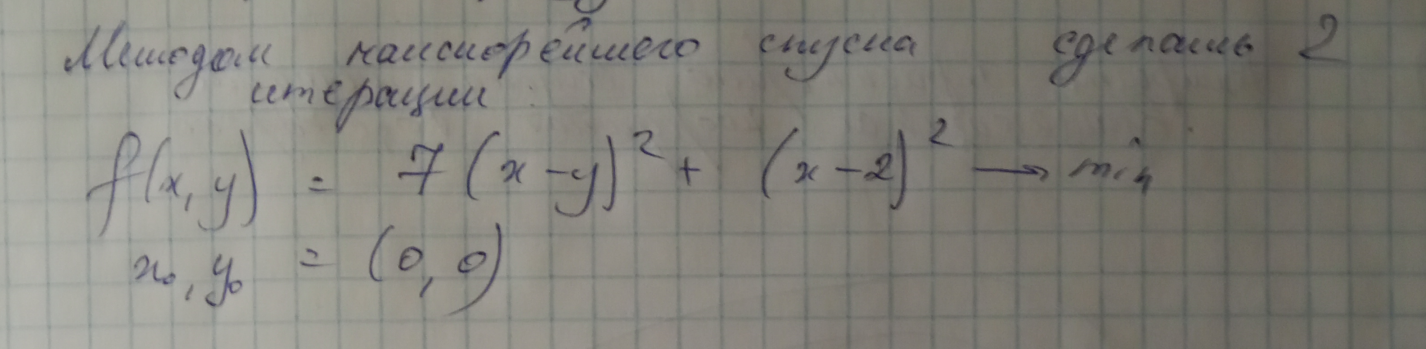 Методом наискорейшего спуска сделать 2
итерации :
f(x, y) = 7 (x-y)² + (x-2)² → min
x₀, y₀ = (0, 0)